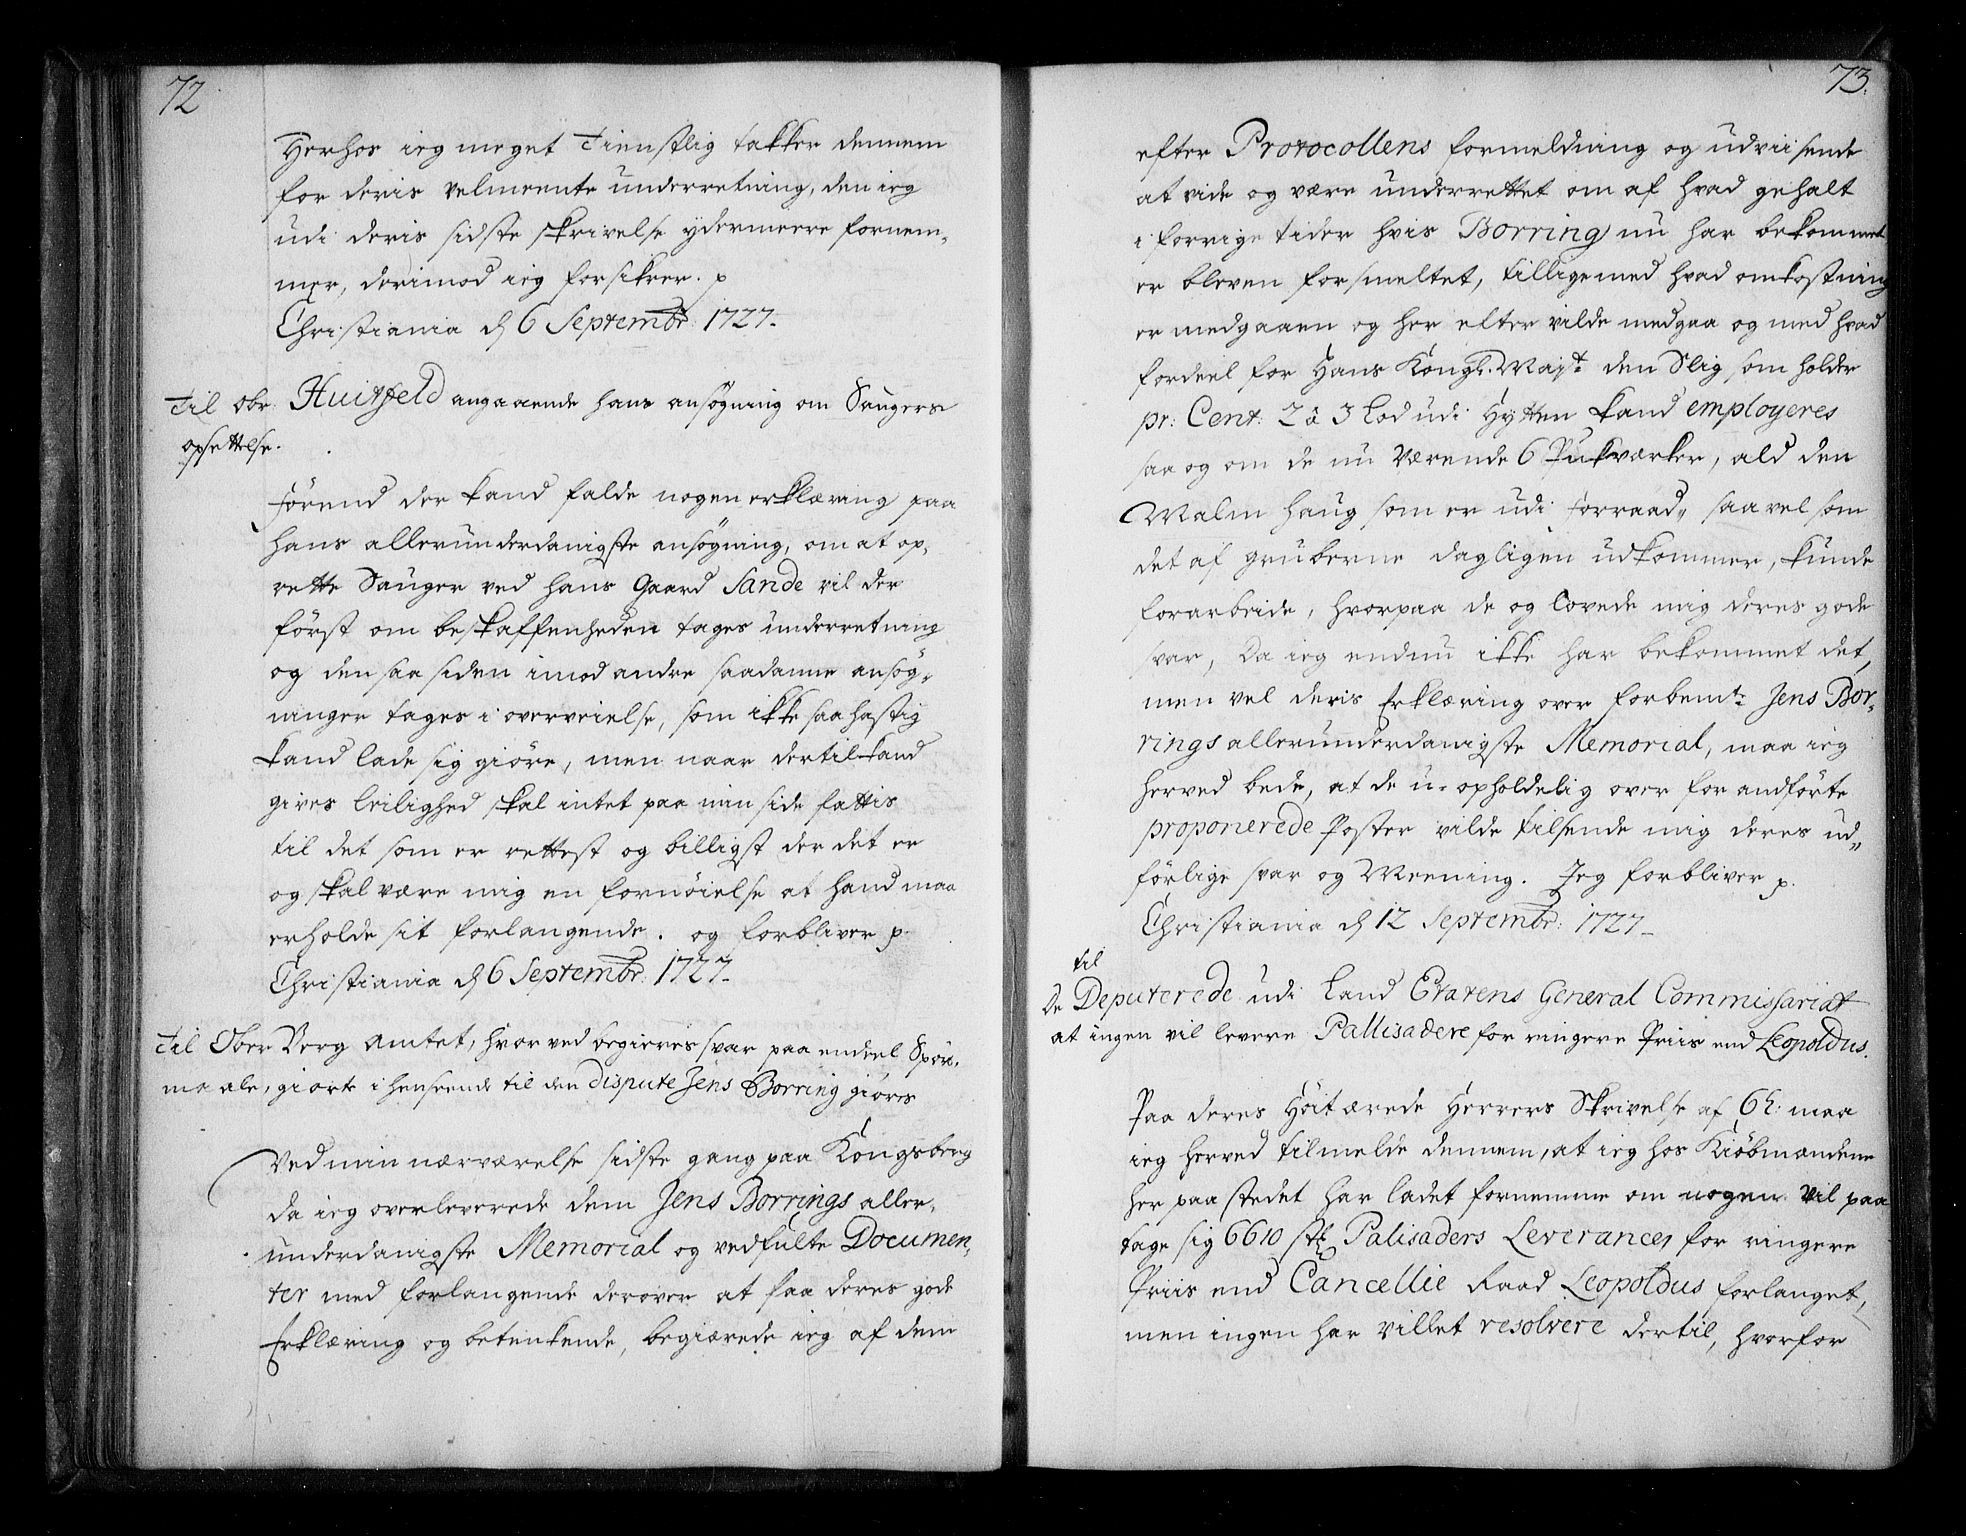 72
Herhos ieg meget tienstlig takker dennem
for deris velmeente underretning, den ieg
udi deris sidste skrivelse ydermeere fornem„
mer, derimod ieg forsikrer. p
Christiania d 6 Septembr: 1727.
Til obr: Huitfeld angaaende hans ansøgning om Saugers
opsettelse.
Førend der kand falde nogen erklæring paa
hans allerunderdanigste ansøgning, om at op„
rette Sauger ved hans Gaard Sande vil der
først om beskaffenheden tages underretning
og den saa siden imod andre saadanne ansøg„
ninger tages i overveielse, som ikke saa hastig
kand lade sig giøre, men naar dertil kand
gives leilighed skal intet paa min side fattis
til det som er rettest og billigst der det er
og skal være mig en fornøielse at hand maa
erholde sit forlangende. og forbliver p.
Christiania d 6 Septembr: 1727.
Til Ober Berg Amtet, hvor ved begieres svar paa endeel Spørs„
maale, giort i henseende til den dispute Jens Borring giøres
Ved min nærværelse sidste gang paa Kongsberg
da ieg overleverede dem Jens Borrings aller„
underdanigste Memorial og vedfulte Documen„
ter med forlangende derover at faa deres gode
Erklæring og betenkende, begiærede ieg af dem
73.
efter Protocollens formeldning og udviisende
at vide og være underrettet om af hvad gehalt
i forrige tider hvis Borring nu har bekommet
er bleven forsmeltet, tilligemed hvad omkostning
er medgaaen og her efter vilde medgaa og med hvad
fordeel for Hans Kongl. Majt den Slig som holder
pr: Cent: 2 à 3 Lod udi Hytten kand employeres
saa og om de nu Værende 6 Pukværker, ald den
Malm haug som er udi forraad„ saavel som
det af gruberne dagligen udkommer, kunde
forarbeide, hvorpaa de og lovede mig deres gode
svar, da ieg endnu ikke har bekommet det,
men vel deris Erklæring over forbemte Jens Bor„
rings allerunderdanigste Memorial, maa ieg
herved bede, at de u-opholdelig over for andførte
proponerede Poster vilde tilsende mig deres ud„
førlige svar og Meening. Jeg forbliver p.
Christiania d 12 Septembr: 1727.
til
De Deputerede udi Land Etatens General Commissariat
at ingen vil levere Pallisadere for ringere Priis end Leopoldus.
Paa deres Høit ærede Herrers Skrivelse af 6t: maa
ieg herved tilmelde dennem, at ieg hos Kiøbmændene
her paa stedet har ladet fornemme om nogen vil paa
tage sig 6610 stk Palisaders Leverance, for ringere
Priis end Cancellie Raad Leopoldus forlanget,
men ingen har villet resolvere dertil, hvorfor